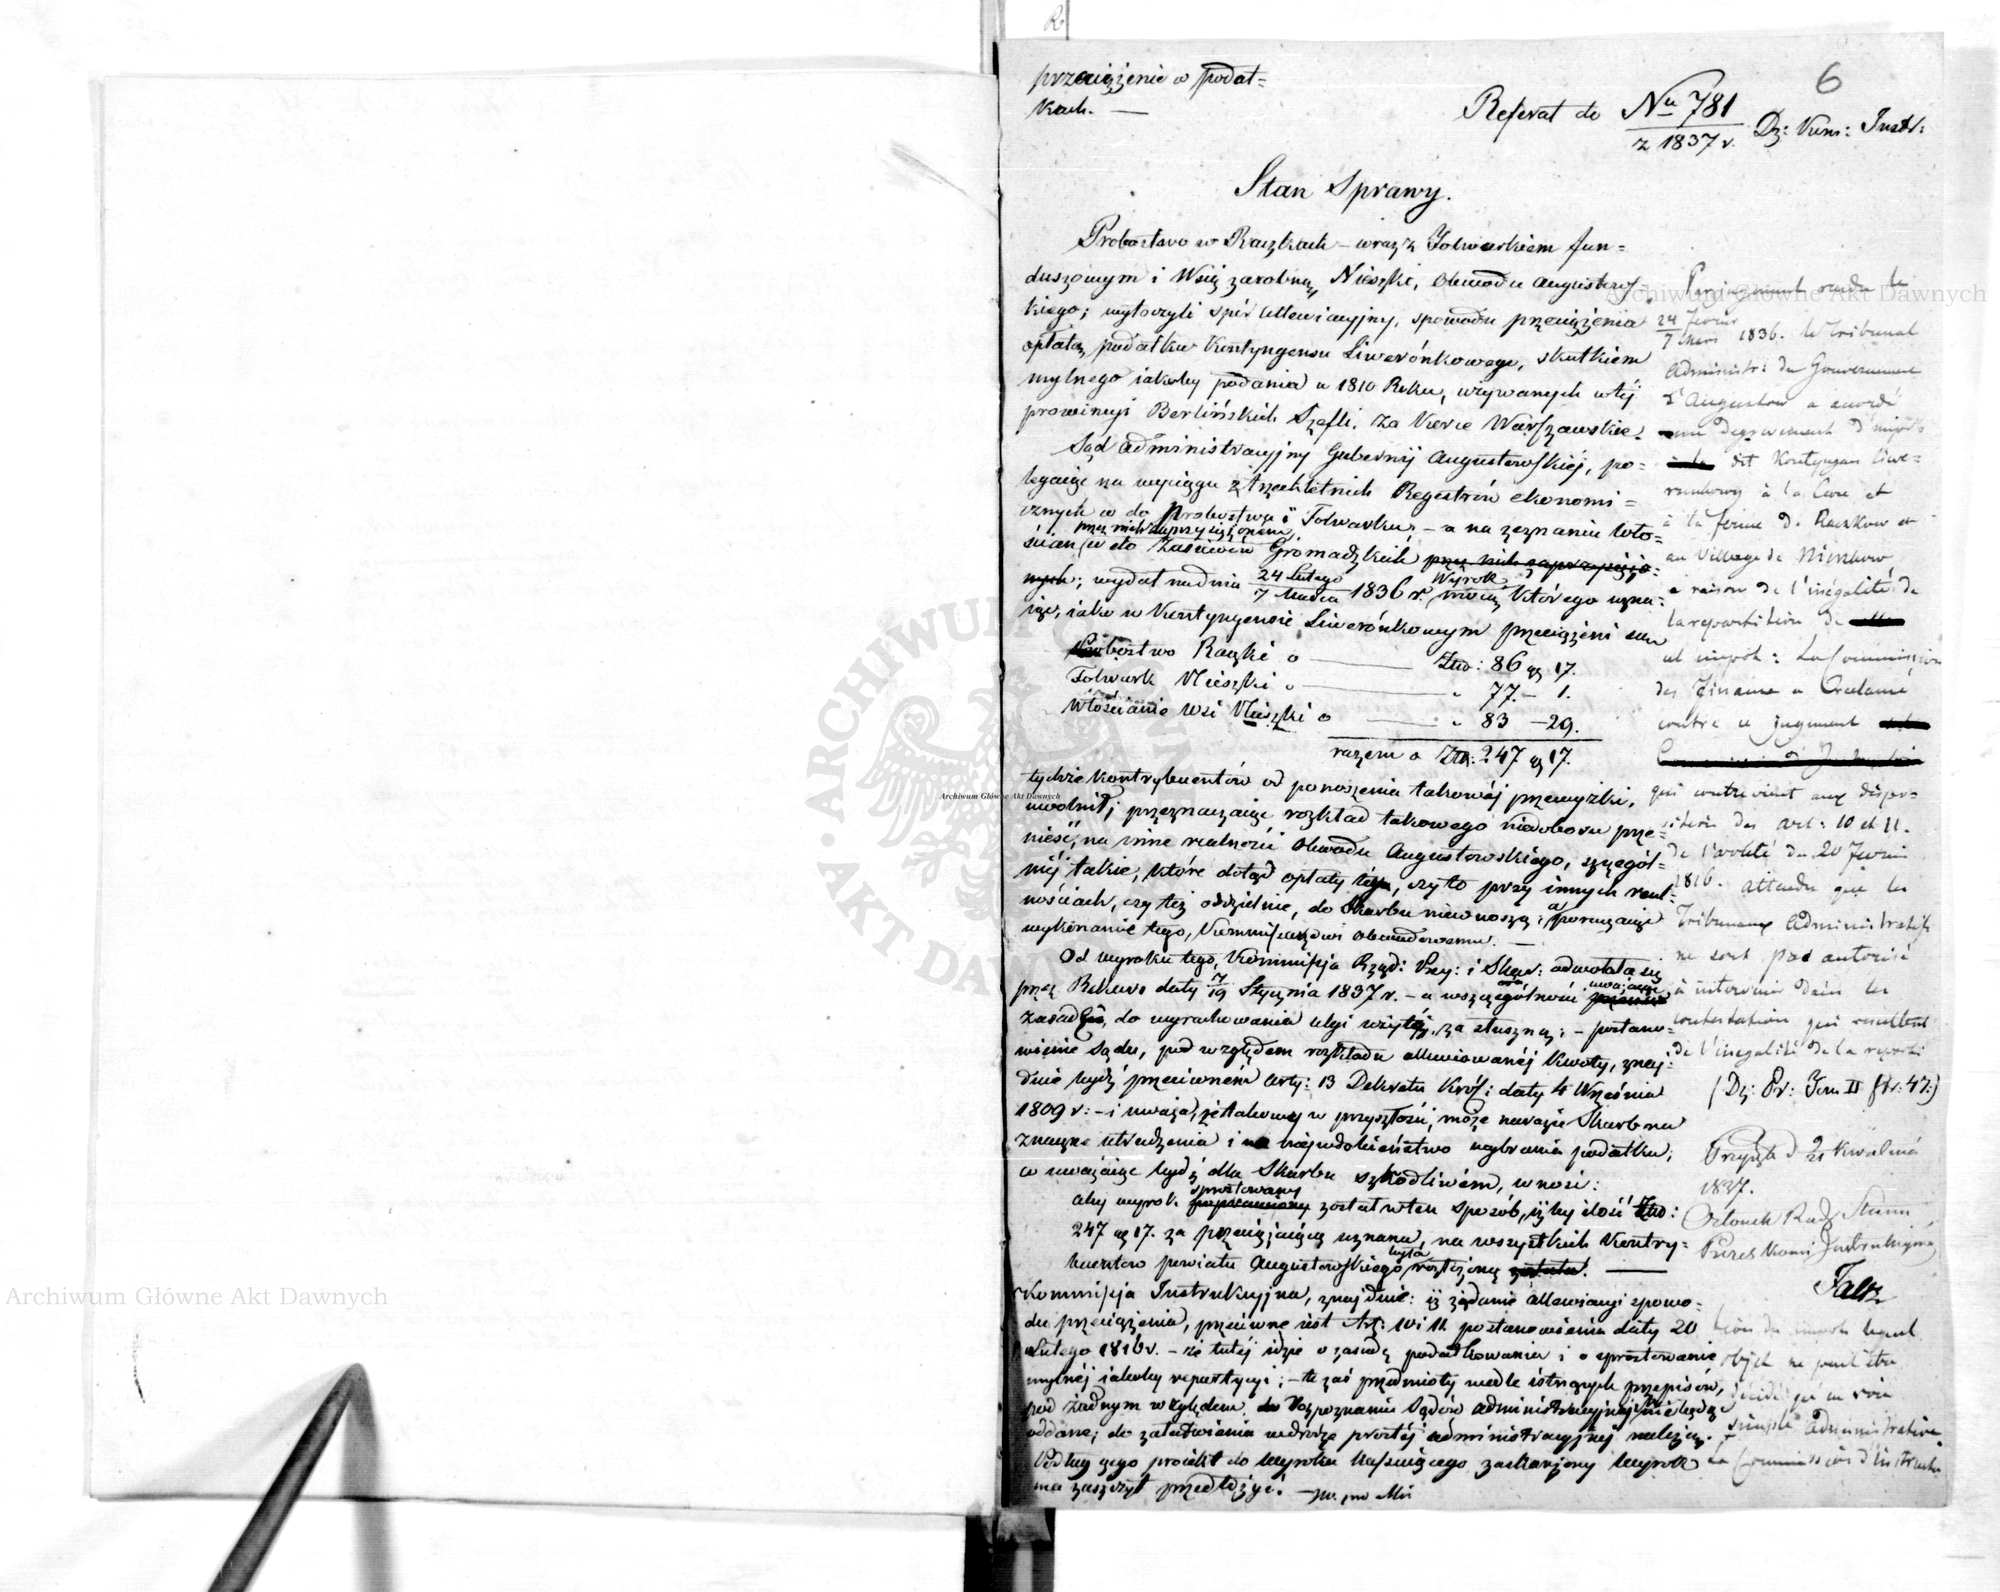 6
przeciążenie w podat=
kach. —
Referat do Nu 781 z 1837 r. Dz: Kom: Instr:
Stan Sprawy.
Probostwo w Raczkach – wraz z Folwarkiem fun=
duszowym i Wsią zarobną Nieszki, Obwodu Augustows=
kiego; wytoczyli spór allewiacyjny, z powodu przeciążenia
opłatą podatku Kontyngensu Liwerónkowego, skutkiem
mylnego jakoby podania w 1810 Roku, używanych w tej
prowincyi Berlińskich Szefli, za Korce Warszawskie.
Sąd administracyjny Gubernij Augustowskiéj, po=
legając na wyciągu z trzechletnich Regestrów ekonomi=
cznych co do Probostwa i Folwarku, – a na zeznaniu włoś=
cian przez nich zaprzysiężonem co do Zasiewów Gromadzkich przez nich zaprzysiężo=
nych; wydał na dniu 24 Lutego / 7 Marca 1836 r. Wyrok mocą którego uzna=
jąc, iako w Kontyngensie Liwerónkowym przeciążeni są
Probostwo Raczki o — Złto: 86 gr 17.
Folwark Nieszki o — " 77 – 1.
Włościanie wsi Nieszki o — " 83 – 29.
razem o Złto: 247 gr 17.
tychże kontrybuentów od ponoszenia takowéj przewyżki,
uwolnił; przeznaczając rozkład takowego niedoboru prze=
nieść, na inne realności Obwodu Augustowskiego, szczegól=
niéj takie, które dotąd opłaty téj, czy to przy innych real=
nościach, czy też oddzielnie, do Skarbu niewnoszą; a poruczając
wykonanie tego, Kommissarzowi Obwodowemu. —
Od wyroku tego, Kommissja Rząd: Przy: i Skar: odwołała się
przez Rekurs daty 7/19 Stycznia 1837 r. – a w szczególności uważając
zasadę, do wyrachowania ulgi użytą, za słuszną; – postano=
wienie Sądu, pod względem rozkładu allewiowanéj kwoty, znaj=
duje bydź przeciwném Arty: 13 Dekretu Król: daty 4 Września
1809 r: – i uważa, że takowy w przyszłości, może narazić Skarb na
znaczne utrudzenia i na niepodobieństwo wybrania podatku;
co uważając bydź dla Skarbu szkodliwém, wnosi:
aby wyrok sprostowany został w ten sposób, iżby ilość Złto:
247 gr 17. za przeciążającą uznana, na wszystkich Kontry=
buentów powiatu Augustowskiego była rozłożoną została. —
Kommissja Instrukcyjna, znajduie: iż żądanie allewiacyi z powo=
du przeciążenia, przeciwne jest Art: 10 i 11. postanowienia daty 20
Lutego 1816 r. – że tutéj idzie o zasadę podatkowania i o sprostowanie
mylnéj jakoby repartycyi; – te zaś przedmioty wedle istniących przepisów,
pod żadnym względem do Rozpoznania Sądów administracyjnych nie będąc
oddane; do załatwienia w drodze prostéj administracyjnéj należą.
Podług czego projekt do Wyroku Kassuiącego zaskarżony Wyrok
ma zaszczyt przedłożyć.
Par jugement rendu le
24 Fevrier / 7 Mars 1836. le Tribunal
Administr: du Gouvernement
d'Augustow a accordé
une degrevement d'impôt
dit Kontyngan liwe=
runkowy à la Cure et
à la ferme de Raczkow et
au Village de Nieszkow
à raison de l'inégalité de
la repartition de
cet impôt: La Commission
des Finances a reclamé
contre ce jugement
qui contrevient aux dispo=
sitions des art: 10 et 11.
de l'arrêté du 20 Fevrier
1816. attendu que les
Tribunaux Administratifs
ne sont pas autorisés
à intervenir dans les
contestations qui resultent
de l'inegalité de la reparti
(Dz: Pr: Tom II str: 47.)
Przyjęto d 21 Kwietnia
1837.
Członek Rady Stanu
Prezes Komi Instrukcyjnéj
Faltz
tion des impots lequel
objet ne peut être
décidé qu'en voie
simple administrative.
La Commission d'Instruction
Archiwum Główne Akt Dawnych
Archiwum Główne Akt Dawnych
Archiwum Główne Akt Dawnych